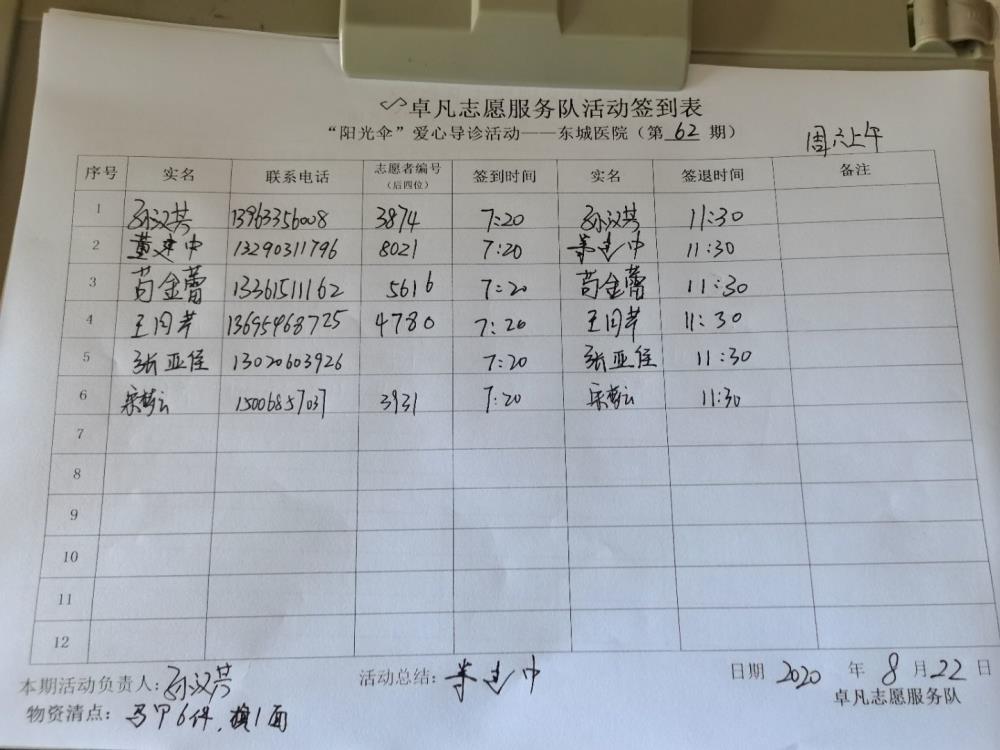 卓凡志愿服务队活动签到表
“阳光伞”爱心导诊活动——东城医院（第 62 期）
周六上午
序号 实名 联系电话 志愿者编号（后四位） 签到时间 实名 签退时间 备注
1 孙汉芬 13963356008 3874 7:20 孙汉芬 11:30
2 董建中 13290311796 8021 7:20 董建中 11:30
3 苟金蕾 13361511162 5616 7:20 苟金蕾 11:30
4 王同苹 13695468725 4780 7:20 王同苹 11:30
5 张亚佳 13020603926 7:20 张亚佳 11:30
6 宋梦云 15006857037 3931 7:20 宋梦云 11:30
7
8
9
10
11
12
本期活动负责人：孙汉芬 活动总结：董建中 日期 2020 年 8 月 22 日
物资清点：马甲6件，旗1面 卓凡志愿服务队